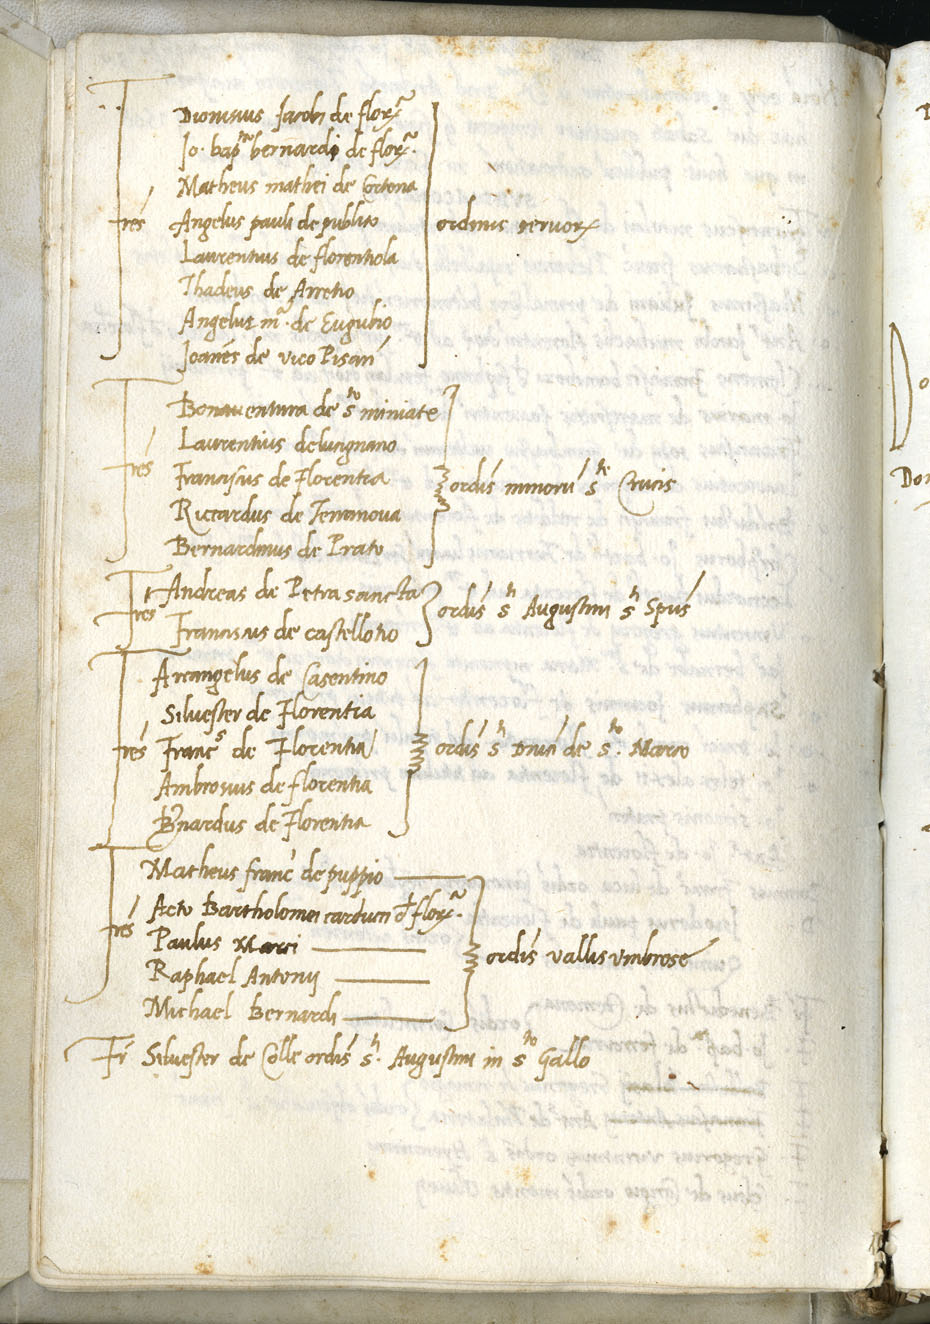 Dionisius Jacobi de florª
Jo. bapta bernardi de florª.
Matheus mathei de Cortona
frēs Angelus pauli de publico ordinis servorz
Laurentius de florentiola
Thadeus de Arretio
Angelus mª. de Eugubio
Joanēs de vico Pisani
Bonaventura de sto miniate
Laurentius de lucignano
frēs Franciscus de Florentia ordīs minorū ste Crucis
Riccardus de Terranova
Bernardinus de Prato
Andreas de Petrasancta
frēs ordīs sti Augustini sti Spūs
Franciscus de castellotio
Arcangelus de Casentino
Silvester de Florentia
frēs Francs de Florentia ordīs sti Dnīci de sto Marco
Ambrosius de florentia
Bnardus de Florentia
Matheus franci de puppio
Acto Bartholomei carducci d florª.
frēs Paulus Marci ordīs vallis umbrose
Raphael Antonij
Michael Bernardi
Fr Silvester de Colle ordīs sti. Augustini in sto Gallo